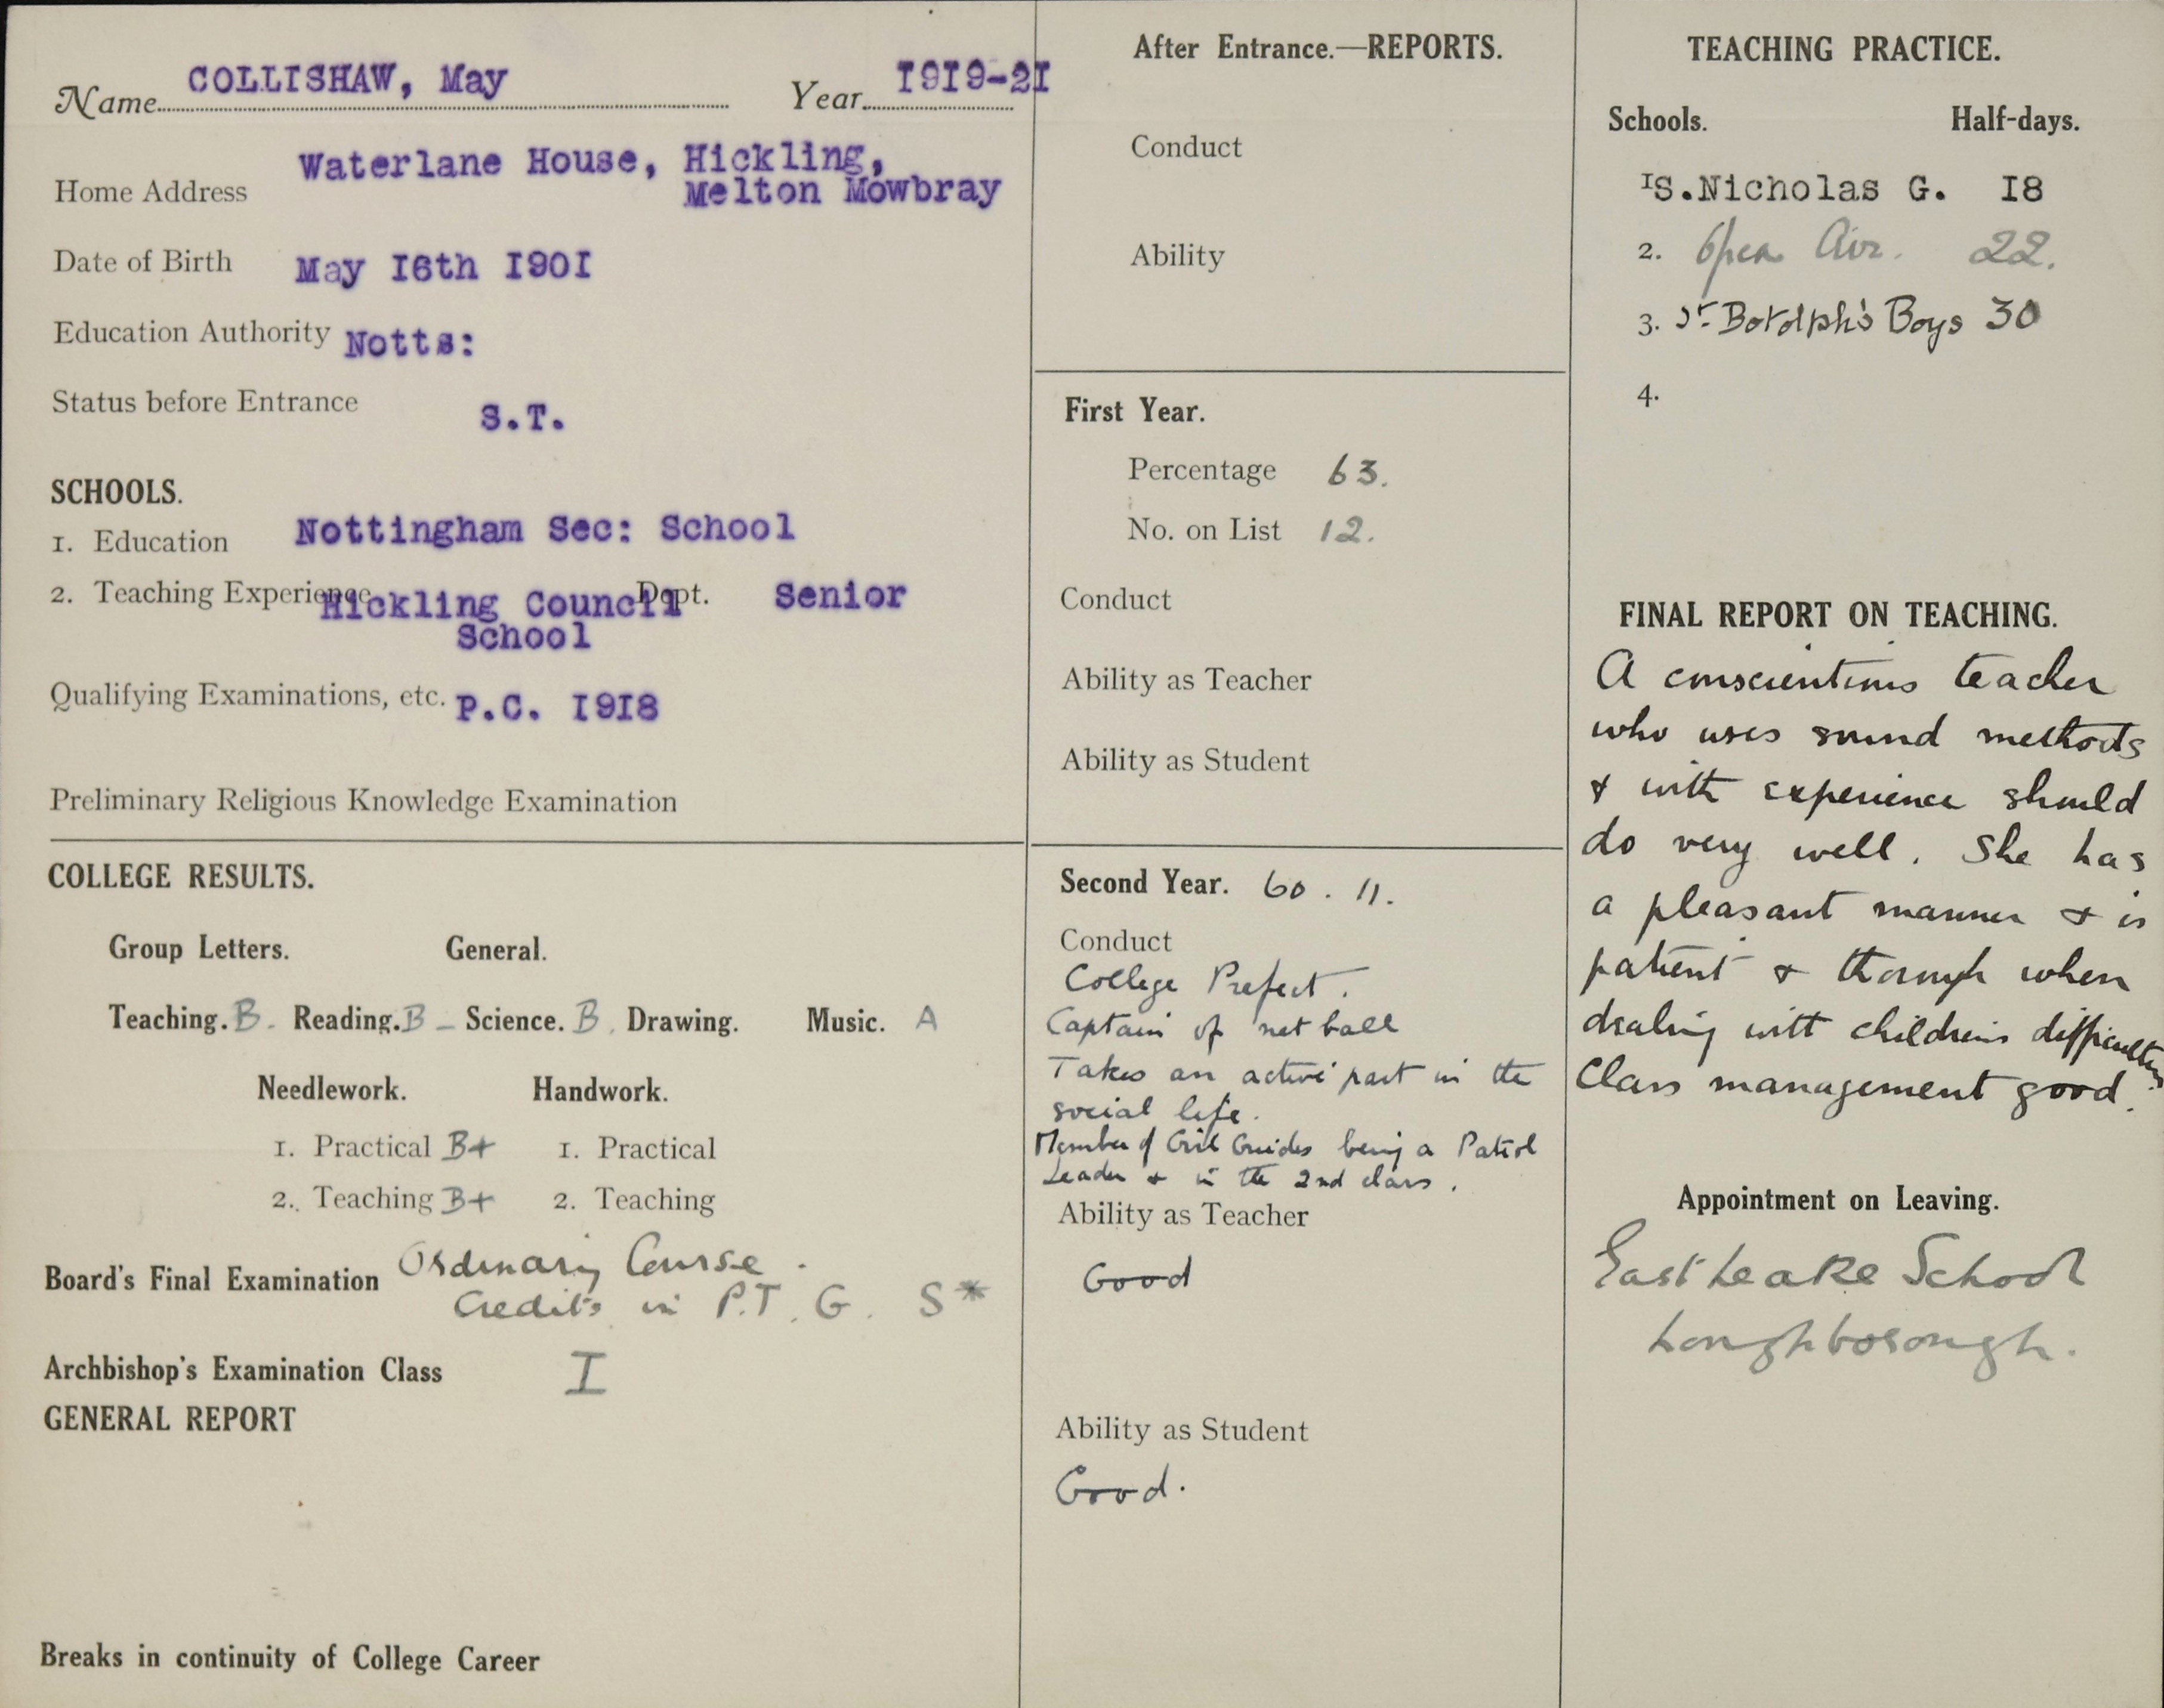 Name COLLISHAW, May Year 1919-21
Home Address Waterlane House, Hickling,
Melton Mowbray
Date of Birth May 16th 1901
Education Authority Notts:
Status before Entrance S.T.
SCHOOLS.
1. Education Nottingham Sec: School
2. Teaching Experience Hickling Council Dept. Senior
School
Qualifying Examinations, etc. P.C. 1918
Preliminary Religious Knowledge Examination
COLLEGE RESULTS.
Group Letters. General.
Teaching. B. Reading. B - Science. B. Drawing. Music. A
Needlework. Handwork.
1. Practical B+ 1. Practical
2. Teaching B+ 2. Teaching
Board's Final Examination Ordinary Course.
Credits in P.T. G. S*
Archbishop's Examination Class I
GENERAL REPORT
Breaks in continuity of College Career
After Entrance.—REPORTS.
Conduct
Ability
First Year.
Percentage 63.
No. on List 12.
Conduct
Ability as Teacher
Ability as Student
Second Year. 60. 11.
Conduct
College Prefect.
Captain of net ball
Takes an active part in the
social life.
Member of Girl Guides being a Patrol
Leader & in the 2nd class.
Ability as Teacher
Good
Ability as Student
Good.
TEACHING PRACTICE.
Schools. Half-days.
1 S.Nicholas G. 18
2. Open Air. 22.
3. St Botolph's Boys 30
4.
FINAL REPORT ON TEACHING.
A conscientious teacher
who uses sound methods
& with experience should
do very well. She has
a pleasant manner & is
patient & thorough when
dealing with children's difficulties.
Class management good.
Appointment on Leaving.
East Leake School
Loughborough.